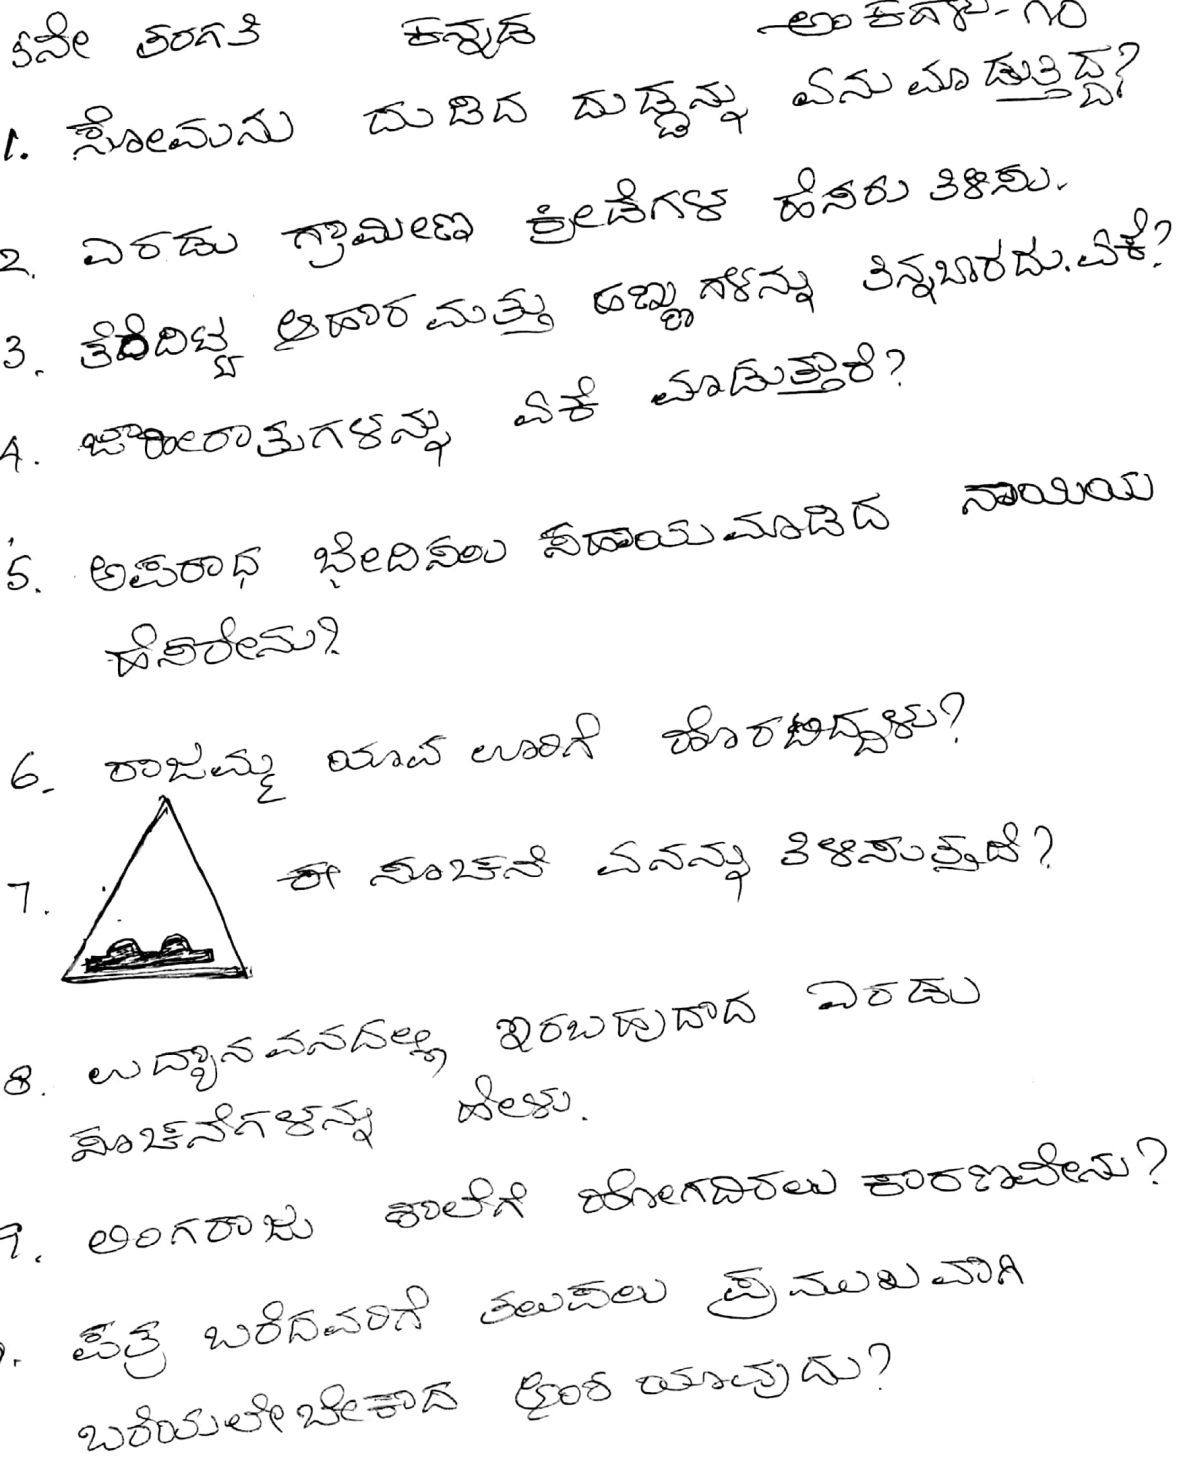 5ನೇ ತರಗತಿ ಕನ್ನಡ ಅಂಕಗಳು-೧೦
1. ಸೋಮನು ದುಡಿದ ದುಡ್ಡನ್ನು ಏನು ಮಾಡುತ್ತಿದ್ದ?
2. ಎರಡು ಗ್ರಾಮೀಣ ಕ್ರೀಡೆಗಳ ಹೆಸರು ತಿಳಿಸು.
3. ತೆರೆದಿಟ್ಟ ಆಹಾರ ಮತ್ತು ಹಣ್ಣುಗಳನ್ನು ತಿನ್ನಬಾರದು. ಏಕೆ?
4. ಜಾಹೀರಾತುಗಳನ್ನು ಏಕೆ ಮಾಡುತ್ತಾರೆ?
5. ಅಪರಾಧ ಭೇದಿಸಲು ಸಹಾಯ ಮಾಡಿದ ನಾಯಿಯ
ಹೆಸರೇನು?
6. ರಾಜಮ್ಮ ಯಾವ ಊರಿಗೆ ಹೊರಟಿದ್ದಳು?
7. ಈ ಸೂಚನೆ ಏನನ್ನು ತಿಳಿಸುತ್ತದೆ?
8. ಉದ್ಯಾನವನದಲ್ಲಿ ಇರಬಹುದಾದ ಎರಡು
ಸೂಚನೆಗಳನ್ನು ಹೇಳು.
9. ಲಿಂಗರಾಜು ಶಾಲೆಗೆ ಹೋಗದಿರಲು ಕಾರಣವೇನು?
. ಪತ್ರ ಬರೆದವರಿಗೆ ತಲುಪಲು ಪ್ರಮುಖವಾಗಿ
ಬರೆಯಲೇಬೇಕಾದ ಅಂಶ ಯಾವುದು?